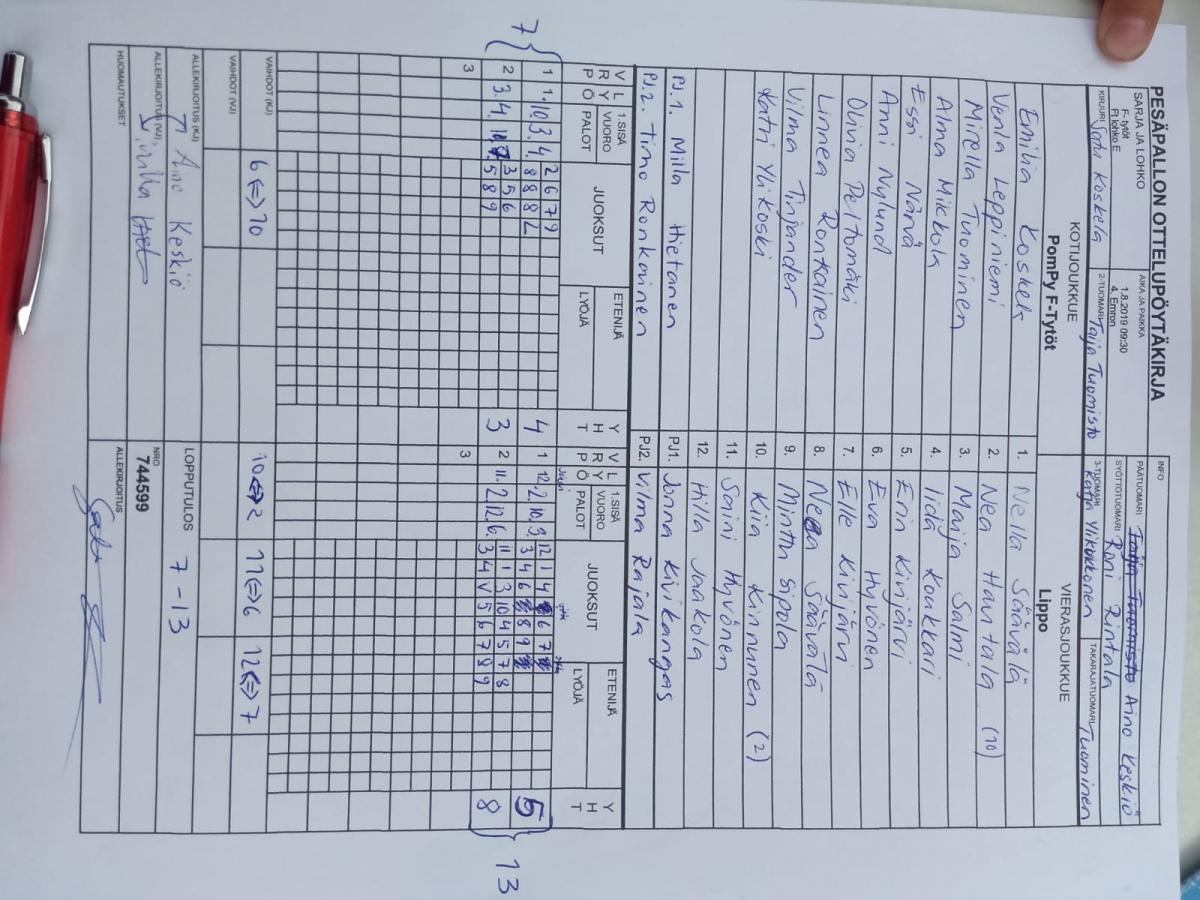 PESÄPALLON OTTELUPÖYTÄKIRJA
SARJA JA LOHKO
F-tytöt
Ft lohko E
AIKA JA PAIKKA
1.8.2019 09:30
4. Emron
INFO
PÄÄTUOMARI Taija Tuomisto Aino Keskiö
SYÖTTÖTUOMARI Roni Rintala
KIRJURI Satu Koskela
2-TUOMARI Taija Tuomisto
3-TUOMARI Katja Ylikokkonen
TAKARAJATUOMARI Tuominen
KOTIJOUKKUE
PomPy F-Tytöt
VIERASJOUKKUE
Lippo
Emilia Koskela
Venla Leppiniemi
Mirella Tuominen
Alma Mikkola
Essi Närvä
Anni Nylund
Olivia Peltomäki
Linnea Ronkainen
Vilma Tinjander
Katri Ylikoski
PJ.1. Milla Hietanen
PJ.2. Timo Ronkainen
1. Nella Säävälä
2. Nea Hautala (10)
3. Maija Salmi
4. Iida Koukkari
5. Erin Kivijärvi
6. Eva Hyvönen
7. Elle Kivijärvi
8. Neea Säävälä
9. Minttu Sippola
10. Kiia Kinnunen (2)
11. Saini Hyvönen
12. Hilla Jaakola
PJ1. Jonna Kivikangas
PJ2. Vilma Rajala
V R Ö
L Y P
1.SISÄ
VUORO
PALOT
JUOKSUT
ETENIJÄ
LYÖJÄ
Y H T
V R Ö
L Y P
1.SISÄ
VUORO
PALOT
JUOKSUT
ETENIJÄ
LYÖJÄ
Y H T
1 1. 10. 3. 4. 2 6 7 9
8 8 8 2
4
2 3. 4. 3 5 6
5 8 9
3
3
7
1 12. 2. 10. 3. 12 1 4 6 7
3 4 6 8 9
5
2 11. 2. 12. 6. 11 11 3 10 4 5 7 8
3 4 V 5 6 7 8 9
8
3
13
VAIHDOT (KJ)
VAIHDOT (VJ)
6 <=> 10
10 <=> 2
11 <=> 6
12 <=> 7
ALLEKIRJOITUS (KJ)
Aino Keskiö
ALLEKIRJOITUS (VJ)
HUOMAUTUKSET
LOPPUTULOS
7 - 13
NRO
744599
ALLEKIRJOITUS